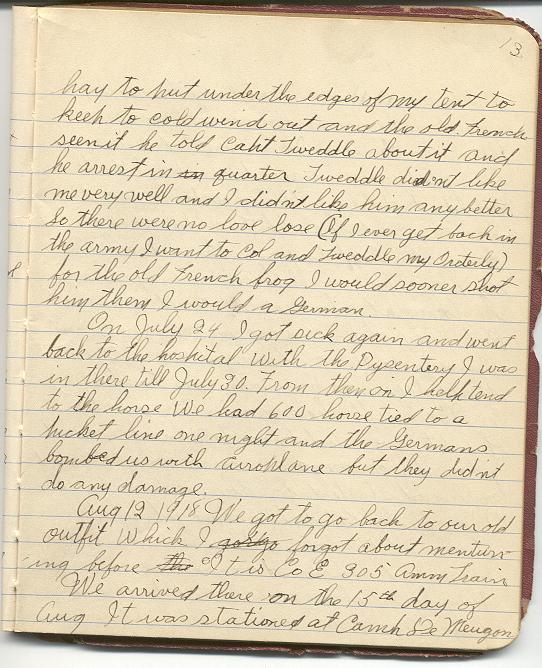 13
hay to put under the edges of my tent to
keep to cold wind out and the old French
seen it he told Capt Tweddle about it and
he arrest in in quarter Tweddle didn't like
me very well and I didn't like him any better
So there were no love lose (If I ever get back in
the army I want to Col and Tweddle my Orderly)
for the old French frog I would sooner shot
him them I would a German.
On July 24 I got sick again and went
back to the hospital with the Dysentery I was
in there till July 30. From then on I help tend
to the horse We had 600 horse tied to a
picket line one night and the Germans
bombed us with airoplane but they didn't
do any damage.
Aug 12 1918 We got to go back to our old
outfit Which I go forgot about mention-
ing before the It is Co E 305 Amm Train
We arrived there on the 15th day of
Aug It was stationed at Camp De Meugon